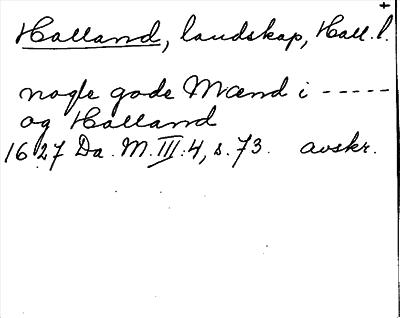 Halland, landskap, Hall.l.
nogle gode Mænd i -----
og Halland
1627 Da. M. III:4, s. 73. avskr.